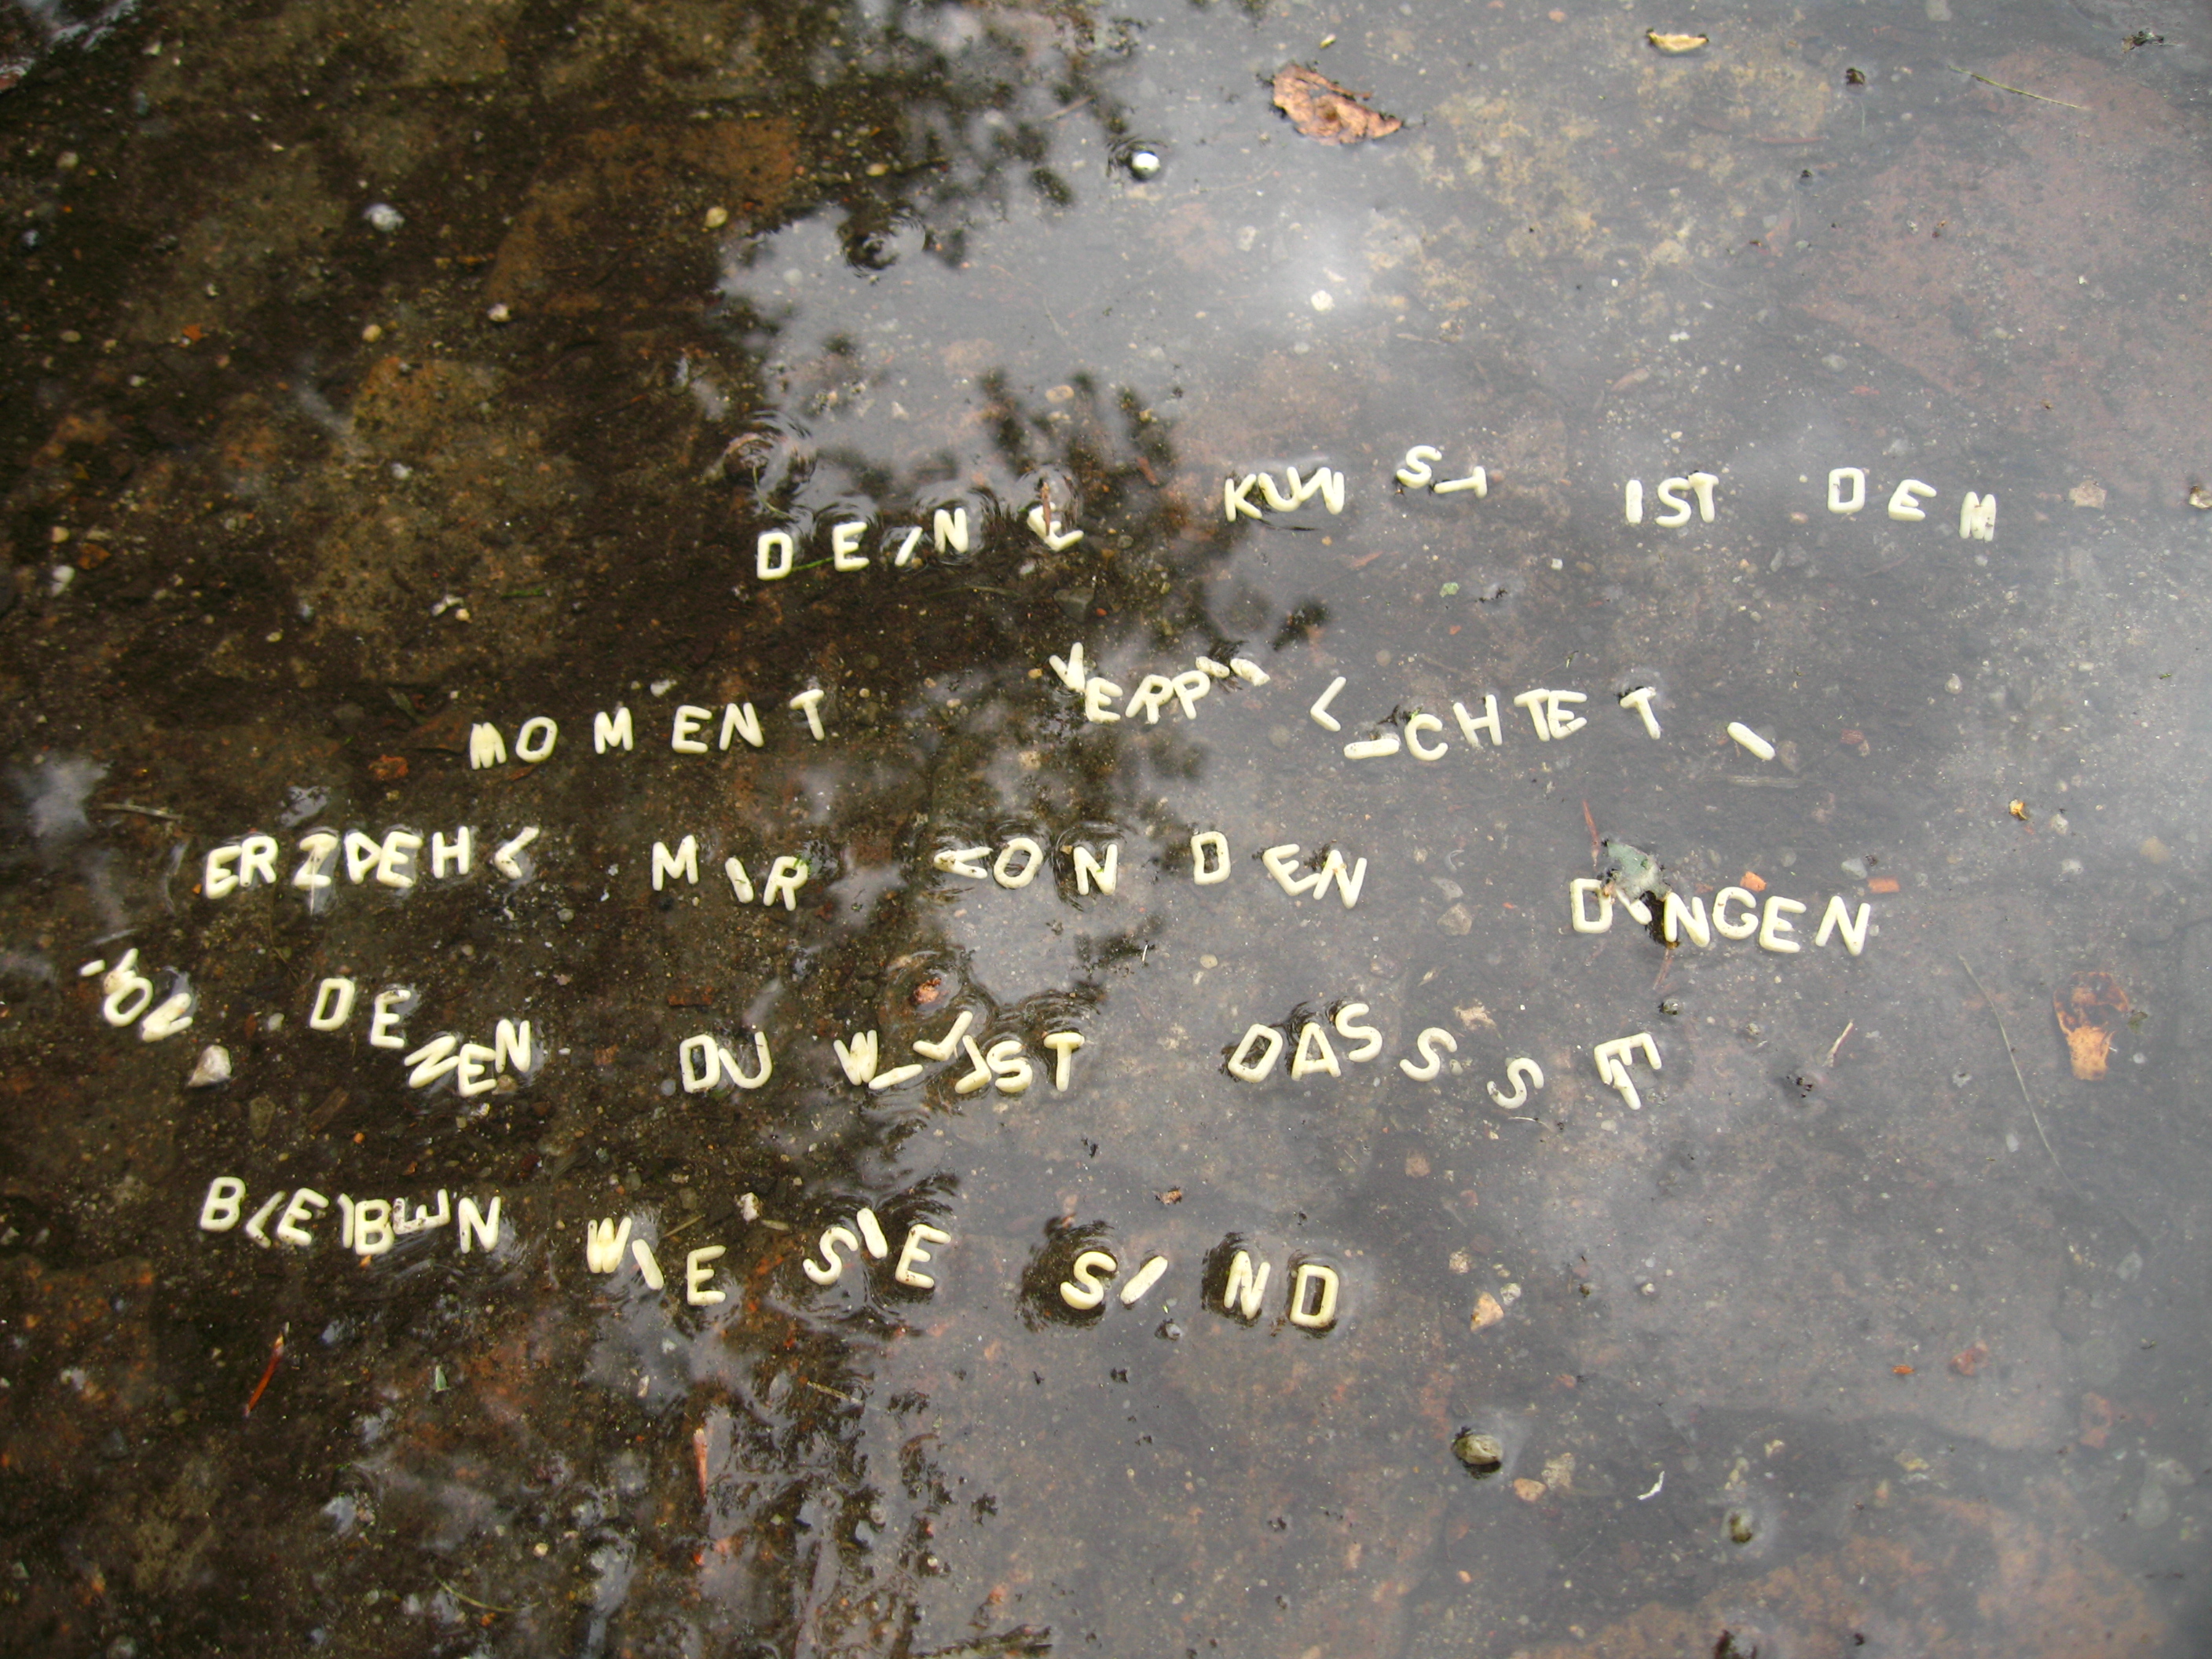 DEINE KUNST IST DEM
MOMENT VERPFLICHTET
ERZAEHL MIR VON DEN DINGEN
VON DENEN DU WILLST DASS SIE
BLEIBEN WIE SIE SIND